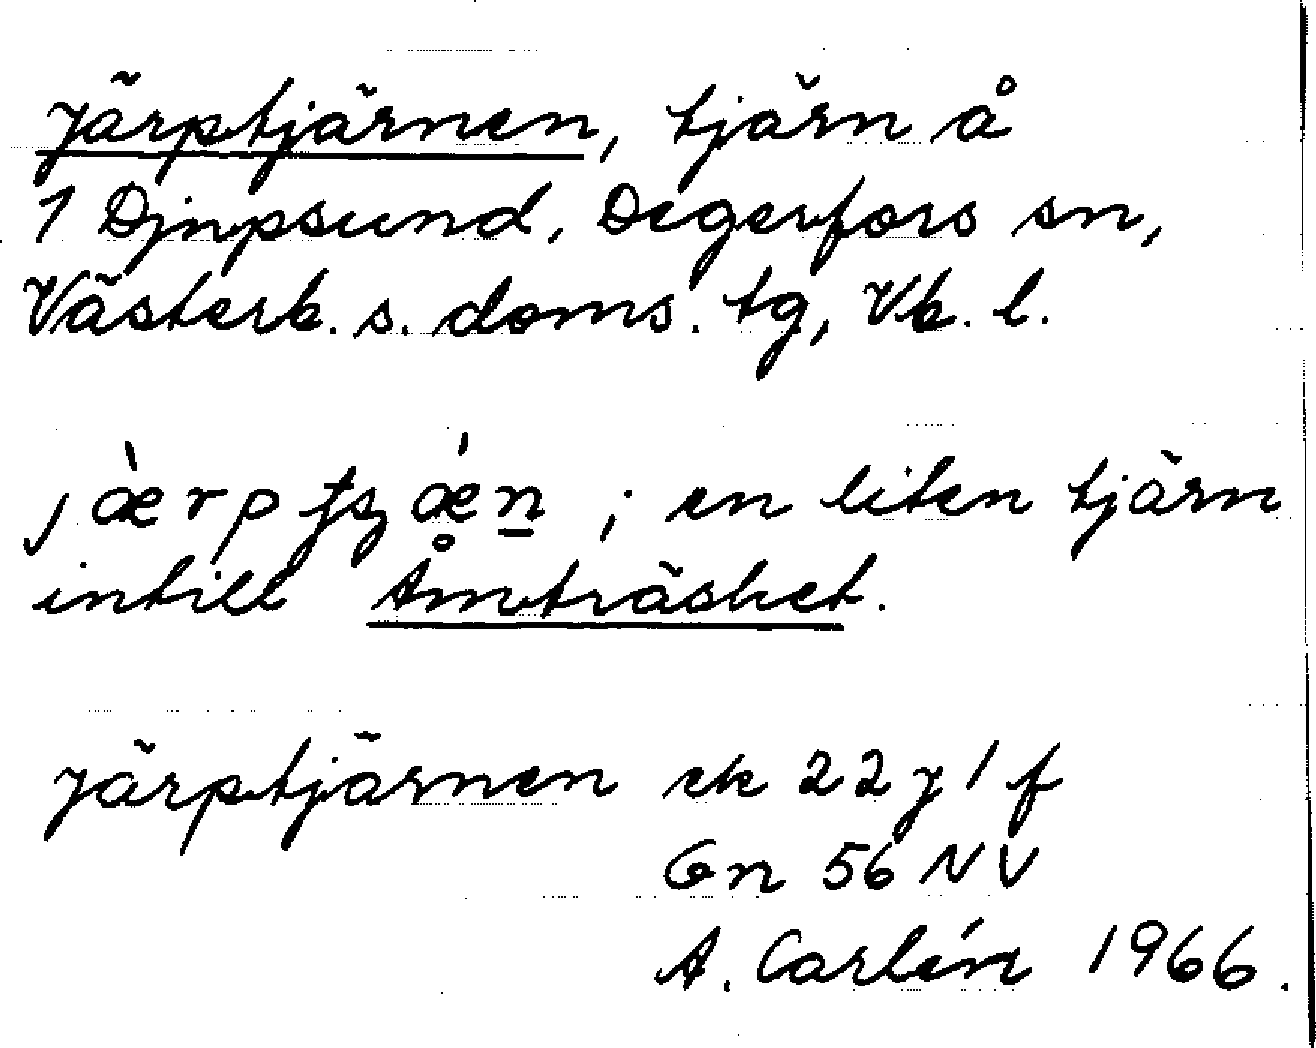 Järptjärnen, tjärn å
1 Djupsund, Degerfors sn,
Västerb. s. doms. tg, Vb. l.
jæ̀rptʂǽn ; en liten tjärn
intill Åmträsket.
Järptjärnen ek 22 J 1 f
Gn 56 NV
A. Carlén 1966.